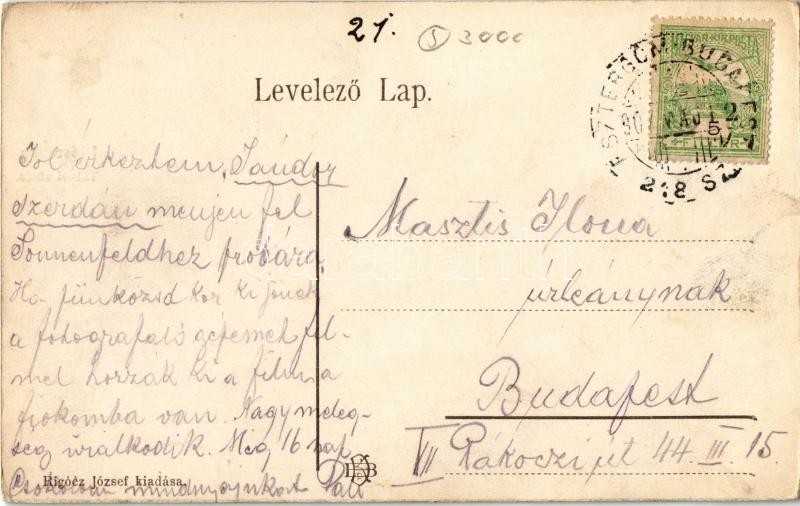 21.
5 3000
Levelező Lap.
MAGYAR KIR. POSTA
ESZTERGOM-BUDAPEST
218 SZ
Jól érkeztem, Sándor
Szerdán menjen fel
Sonnenfeldhez próbára,
Ha pünközsd kor ki jönek
a fotografáló gépemet fil-
mel hozzák ki a filma
fiokomba van. Nagy meleg-
ség uralkodik. Még 16 nap
Csokolom mindnyájunkat Pali
Masztis Ilona
úrleánynak
Budapest
VII Rákoczi út 44 III. 15.
Rigócz József kiadása.
darabanth